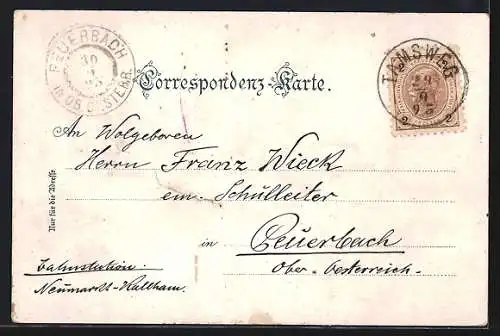 PEUERBACH
IN OB. ÖSTERR.
TAMSWEG
29
9
2 2
Correspondenz-Karte.
An Wolgeboren
Herrn Franz Wieck
em. Schulleiter
in Peuerbach
Ober-Oesterreich-
Bahnstation:
Neumarkt-Kallham.
Nur für die Adresse.